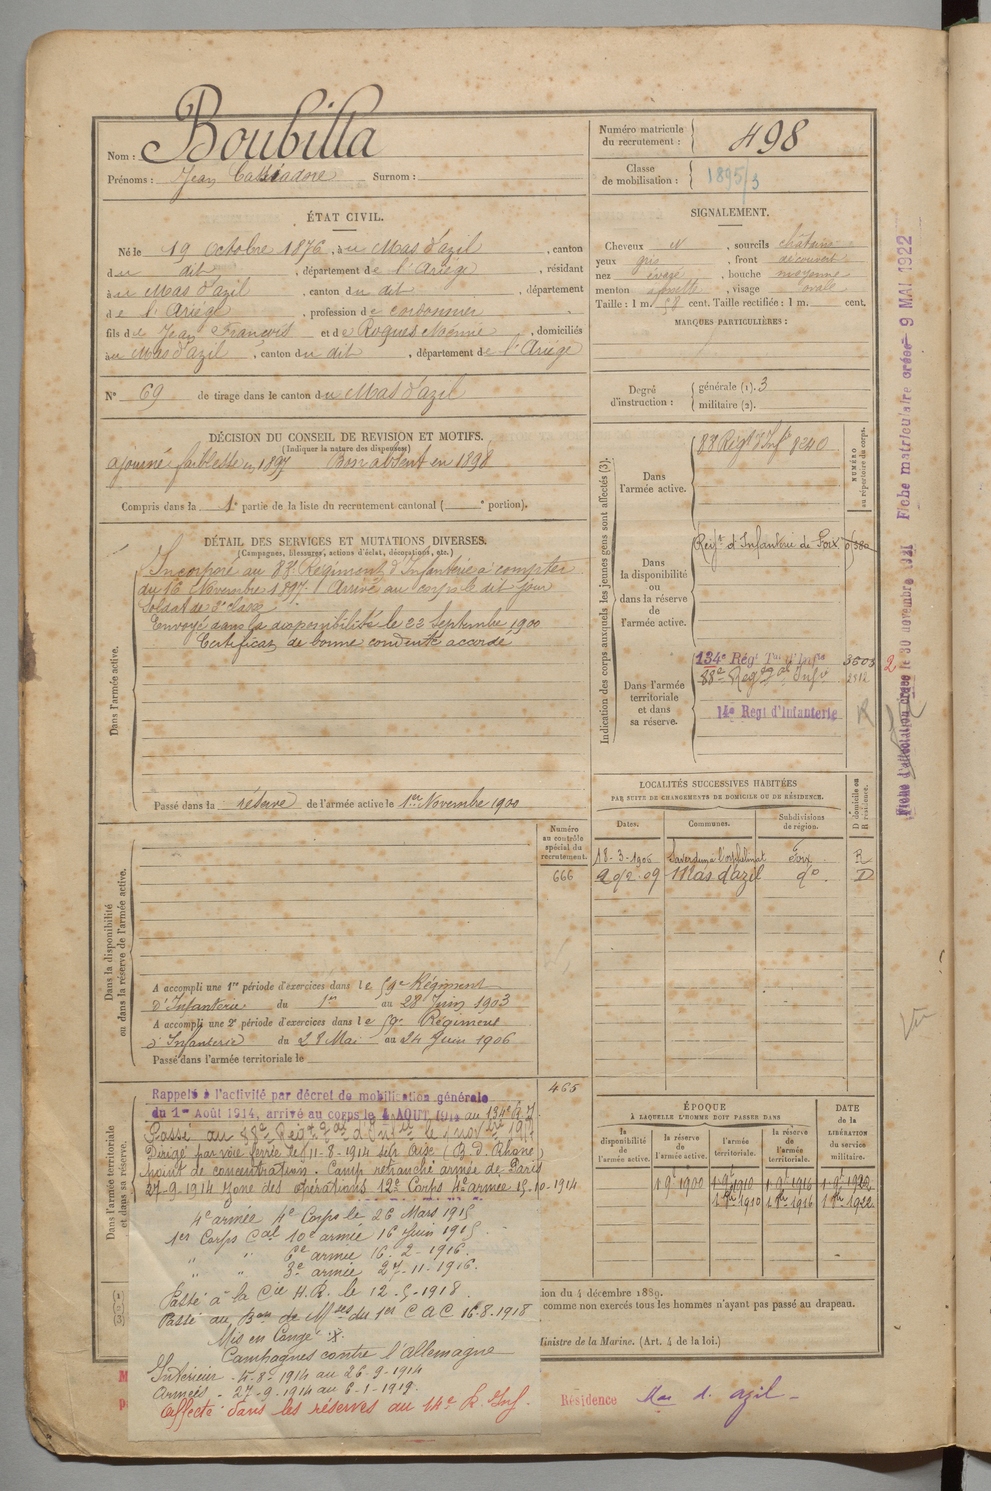 Nom : Boubilla
Prénoms : Jean Surnom :
Numéro matricule du recrutement : 498
Classe de mobilisation : 1895/3
ÉTAT CIVIL.
Né le 19 Octobre 1876, à u Mas d'azil, canton
du dit, département de l'Ariège, résidant
à u Mas d'azil, canton du dit, département
de l'Ariège, profession de cordonnier
fils de Jean François et de Roques Noémie, domiciliés
à u Mas d'azil, canton du dit, département de l'Ariège
N° 69 de tirage dans le canton du Mas d'azil
SIGNALEMENT.
Cheveux N, sourcils châtains
yeux gris, front découvert
nez évasé, bouche moyenne
menton, visage ovale
Taille : 1 m. 58 cent. Taille rectifiée : 1 m. cent.
MARQUES PARTICULIÈRES :
Degré d'instruction : générale (1). 3
militaire (2).
DÉCISION DU CONSEIL DE REVISION ET MOTIFS.
(Indiquer la nature des dispenses)
ajourné faiblesse en 1897 Bon absent en 1898
Compris dans la 1e partie de la liste du recrutement cantonal ( e portion).
DÉTAIL DES SERVICES ET MUTATIONS DIVERSES.
(Campagnes, blessures, actions d'éclat, décorations, etc.)
Dans l'armée active.
Incorporé au 88e Régiment d'Infanterie à compter
du 16 Novembre 1897. Arrivé au corps le dit jour
Soldat de 2e classe
Envoyé dans la disponibilité le 23 Septembre 1900
Certificat de bonne conduite accordé
Passé dans la réserve de l'armée active le 1er Novembre 1900
Indication des corps auxquels les jeunes gens sont affectés (3).
NUMÉRO au répertoire du corps.
Dans l'armée active.
88 Regt d'Infie 8240
Dans la disponibilité ou dans la réserve de l'armée active.
Regt d'Infanterie de Foix
Dans l'armée territoriale et dans sa réserve.
134e Régt Tal d'Infie
88e Regt d'Infie 2512
14e Regt d'Infanterie
LOCALITÉS SUCCESSIVES HABITÉES
PAR SUITE DE CHANGEMENTS DE DOMICILE OU DE RÉSIDENCE.
Dates. Communes. Subdivisions de région. D domicile ou R résidence.
18-3-1906 Saverdun Foix R
09 Mas d'azil do D
Dans la disponibilité ou dans la réserve de l'armée active.
Numéro au contrôle spécial du recrutement.
666
A accompli une 1re période d'exercices dans le 59e Régiment
d'Infanterie du 1er au 28 Juin 1903
A accompli une 2e période d'exercices dans le 59e Régiment
d'Infanterie du 28 Mai au 24 Juin 1906
Passé dans l'armée territoriale le
465
Dans l'armée territoriale et dans sa réserve.
Rappelé à l'activité par décret de mobilisation générale
du 1er Août 1914, arrivé au corps le 4 AOUT 1914 au 134e R.I.
Dirigé par voie ferrée le 11-8-1914 sur Aix (B. d. Rhône)
point de concentration. Camp retranché armée de Paris
27-9-1914 Zone des opérations 12e Corps 4e armée 15-10-1914
4e armée 4e Corps le 26 Mars 1915
1er Corps Cal 10e armée 16 Juin 1915
" " 6e armée 16-2-1916.
" " 3e armée 27-11-1916.
Passé à la Cie H.R. le 12-5-1918.
Passé au Bon de Mses du 1er C A C 16-8-1918
Mis en Congé
Campagnes contre l'allemagne
Intérieur. 4-8-1914 au 26-9-1914
Armées. 27-9-1914 au 6-1-1919.
Affecté dans les réserves au 14e R. Inf.
ÉPOQUE
À LAQUELLE L'HOMME DOIT PASSER DANS
DATE DE LA LIBÉRATION du service militaire.
la disponibilité de l'armée active. la réserve de l'armée active. l'armée territoriale. la réserve de l'armée territoriale.
1 9e 1900 1 9e 1910 1 9e 1916 1 9e 1922
ion du 4 décembre 1889.
comme non exercés tous les hommes n'ayant pas passé au drapeau.
Ministre de la Marine. (Art. 4 de la loi.)
Résidence Mas d'azil
Fiche d'attestation créée le 30 novembre 1921
Fiche matriculaire créée 9 MAI 1922
Vu